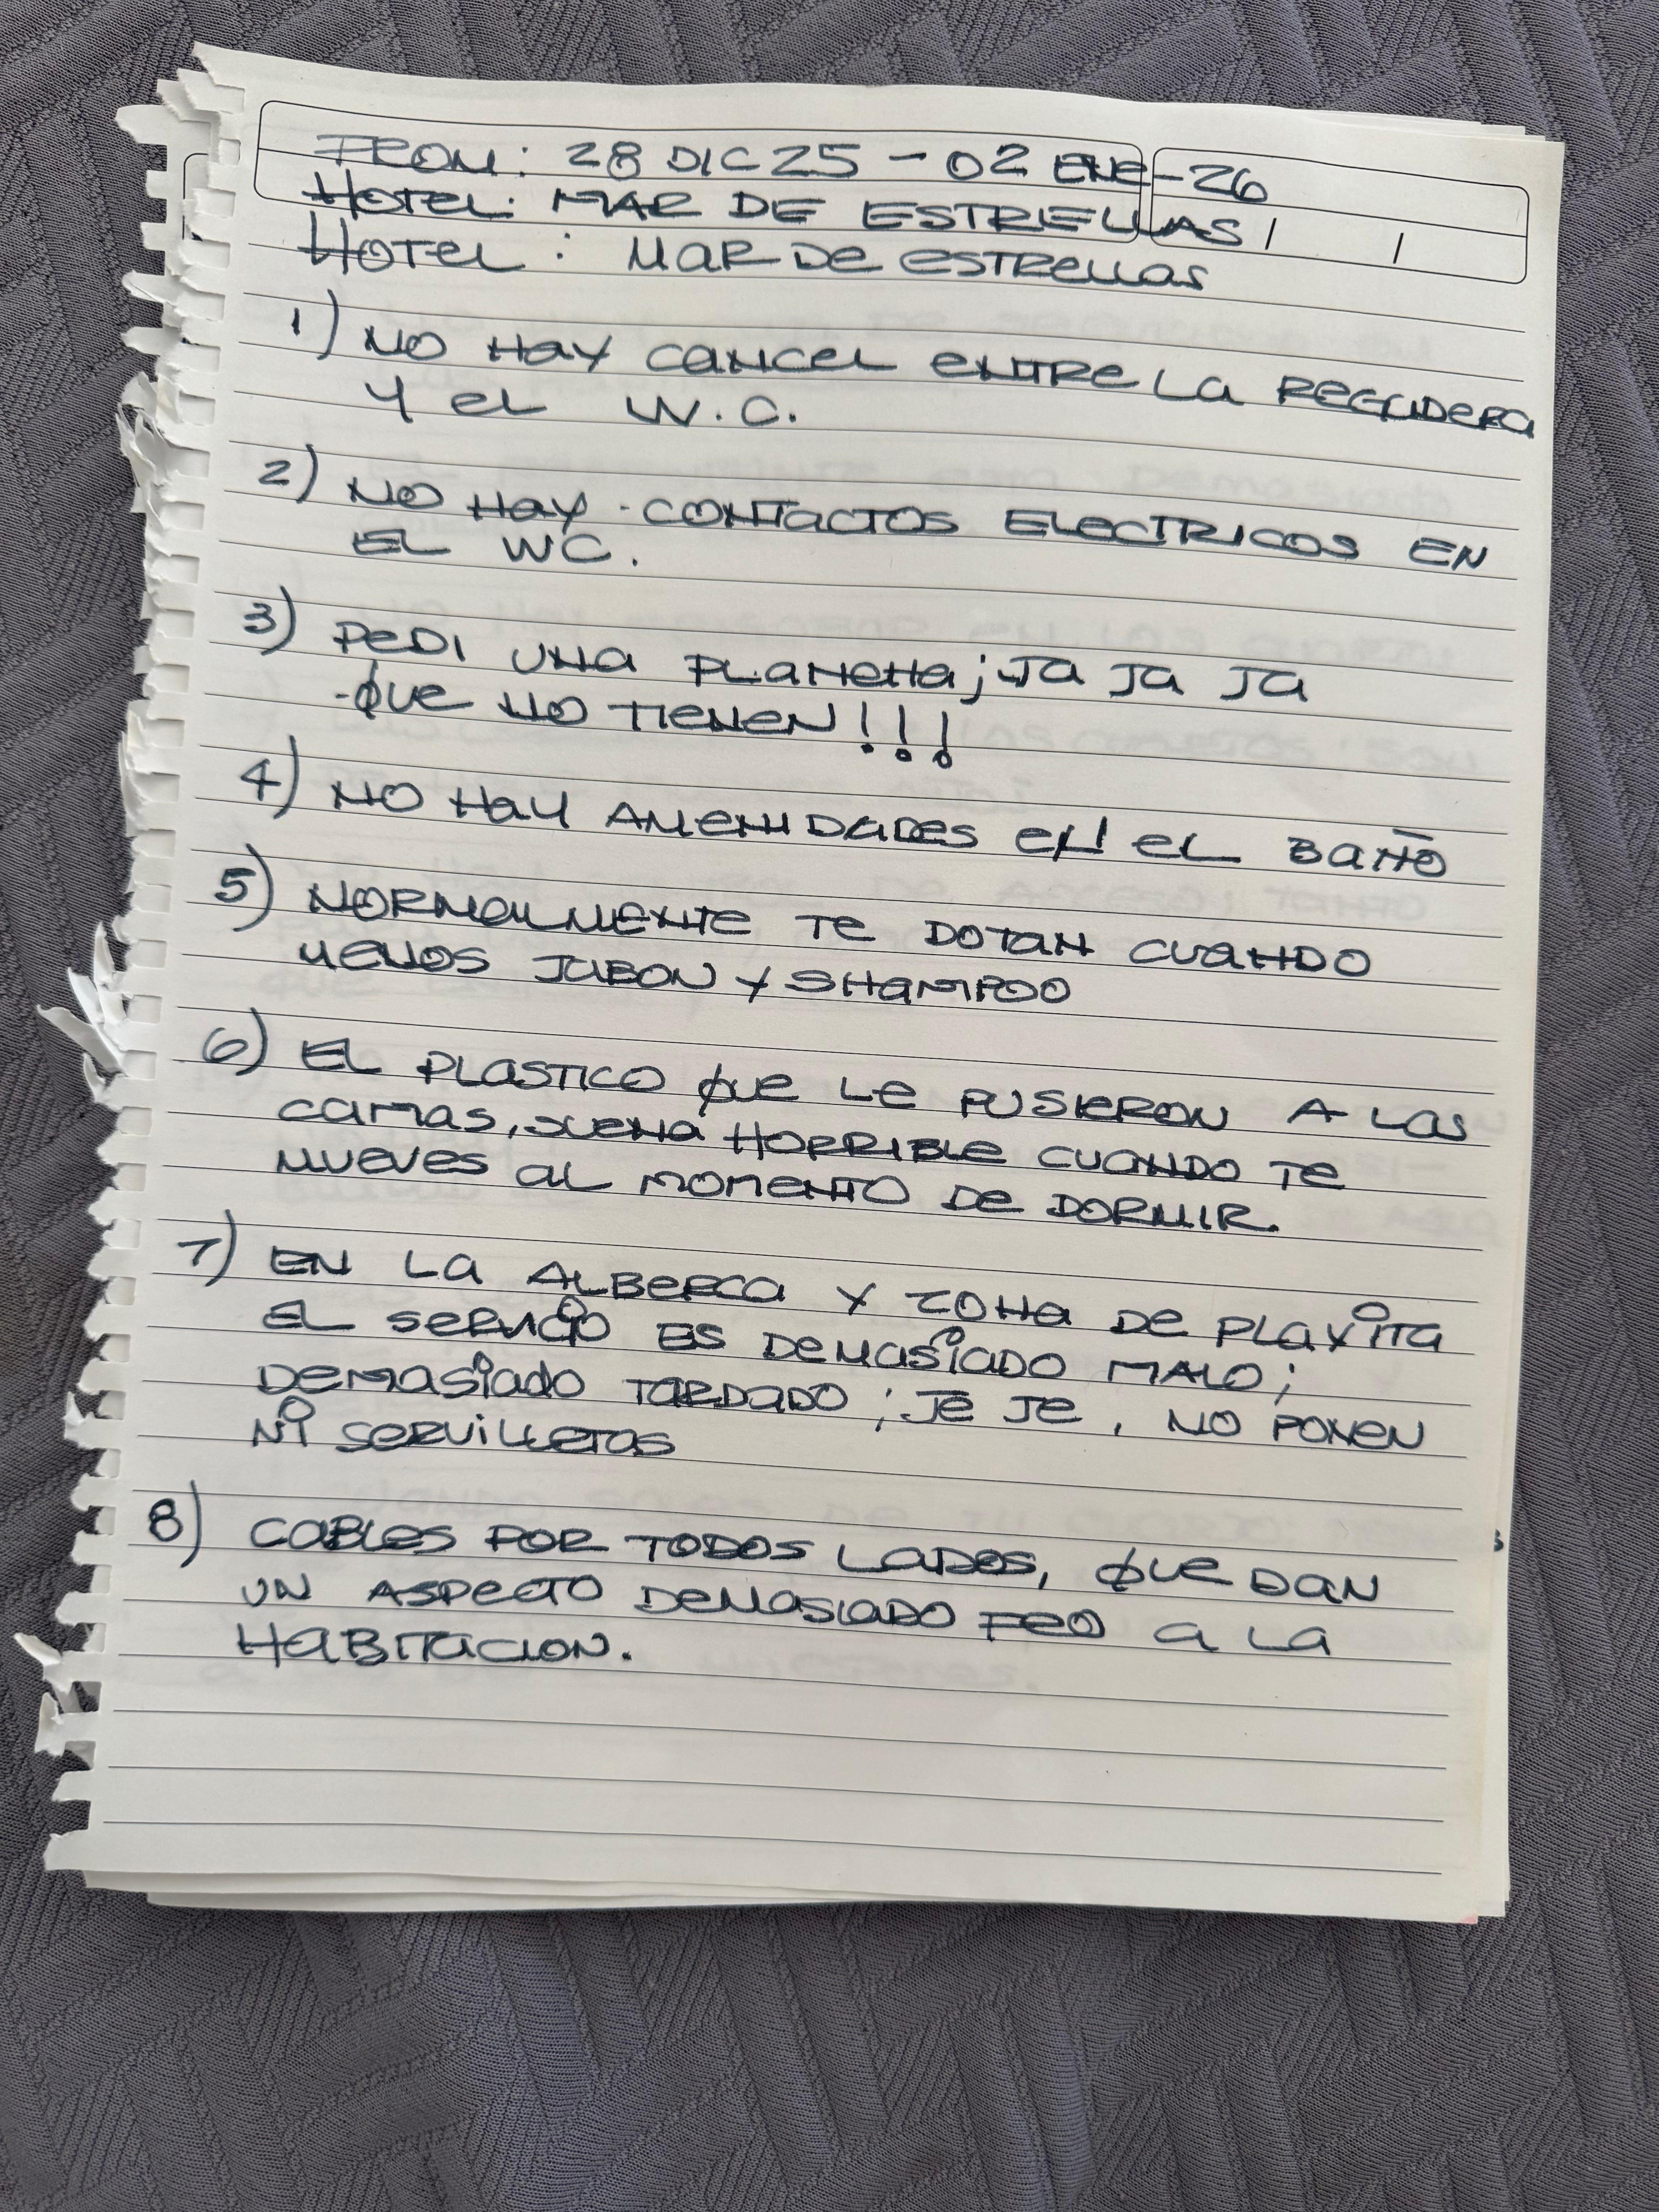 FROM: 28 DIC 25 - 02 ENE-26
HOTEL: MAR DE ESTRELLAS
HOTEL: MAR DE ESTRELLAS
1) NO HAY CANCEL ENTRE LA REGADERA
Y EL W.C.
2) NO HAY CONTACTOS ELECTRICOS EN
EL WC.
3) PEDI UNA PLANCHA; JA JA JA
-QUE NO TIENEN!!!
4) NO HAY AMENIDADES EN EL BAÑO
5) NORMALMENTE TE DOTAN CUANDO
MENOS JABON Y SHAMPOO
6) EL PLASTICO QUE LE PUSIERON A LAS
CAMAS, SUENA HORRIBLE CUANDO TE
MUEVES AL MOMENTO DE DORMIR.
7) EN LA ALBERCA Y ZONA DE PLAYITA
EL SERVICIO ES DEMASIADO MALO;
DEMASIADO TARDADO; JE JE, NO PONEN
NI SERVILLETAS
8) CABLES POR TODOS LADOS, QUE DAN
UN ASPECTO DEMASIADO FEO A LA
HABITACION.